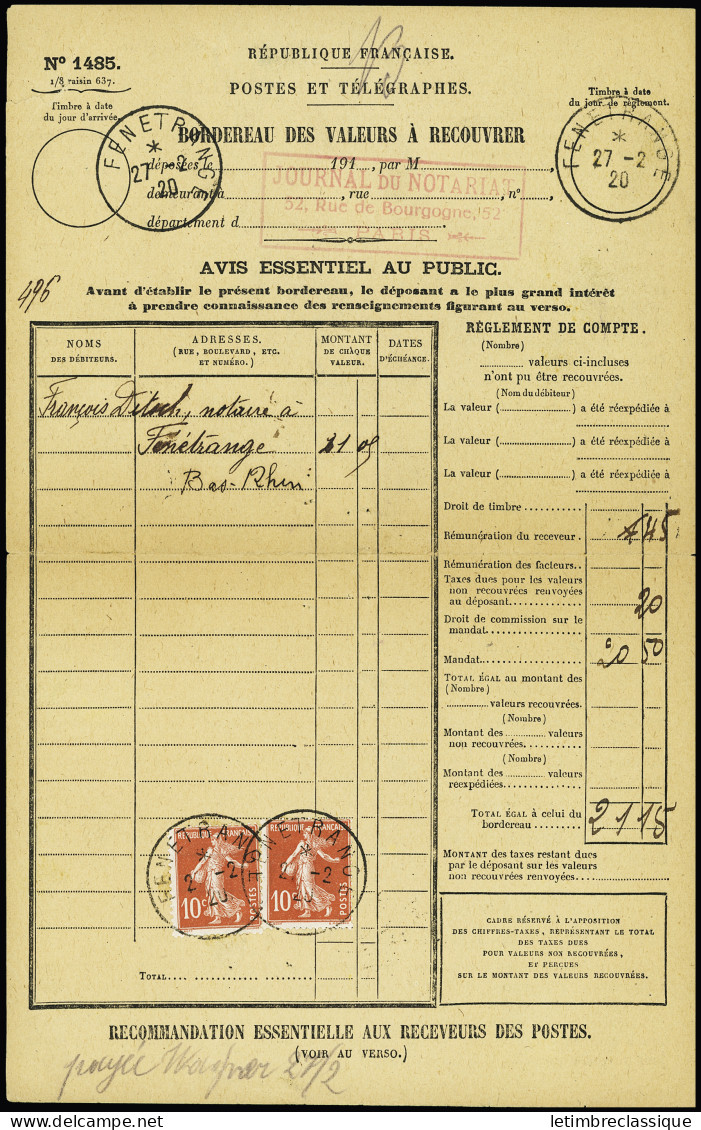 N° 1485.
1/8 raisin 637.
RÉPUBLIQUE FRANÇAISE.
POSTES ET TÉLÉGRAPHES.
Timbre à date
du jour d'arrivée
Timbre à date
du jour de règlement.
FENETRANGE
27 -2
20
FENETRANGE
27 -2
20
BORDEREAU DES VALEURS À RECOUVRER
déposées le 191 , par M
demeurant à , rue , n°
département d
JOURNAL DU NOTARIAT
52, Rue de Bourgogne, 52
PARIS
AVIS ESSENTIEL AU PUBLIC.
496
Avant d'établir le présent bordereau, le déposant a le plus grand intérêt
à prendre connaissance des renseignements figurant au verso.
NOMS
DES DÉBITEURS.
ADRESSES.
(RUE, BOULEVARD, ETC.
ET NUMÉRO.)
MONTANT
DE CHAQUE
VALEUR.
DATES
D'ÉCHÉANCE.
François Ditsch, notaire à
Fénétrange 21 05
Bas-Rhin
RÈGLEMENT DE COMPTE.
(Nombre)
valeurs ci-incluses
n'ont pu être recouvrées.
(Nom du débiteur)
La valeur (..........) a été réexpédiée à
La valeur (..........) a été réexpédiée à
La valeur (..........) a été réexpédiée à
Droit de timbre
Rémunération du receveur 45
Rémunération des facteurs.
Taxes dues pour les valeurs
non recouvrées renvoyées
au déposant 20
Droit de commission sur le
mandat
Mandat 20 50
TOTAL ÉGAL au montant des
(Nombre)
valeurs recouvrées.
(Nombre)
Montant des valeurs
non recouvrées.
(Nombre)
Montant des valeurs
réexpédiées
TOTAL ÉGAL à celui du
bordereau 21 15
MONTANT des taxes restant dues
par le déposant sur les valeurs
non recouvrées renvoyées
CADRE RÉSERVÉ À L'APPOSITION
DES CHIFFRES-TAXES, REPRÉSENTANT LE TOTAL
DES TAXES DUES
POUR VALEURS NON RECOUVRÉES,
ET PERÇUES
SUR LE MONTANT DES VALEURS RECOUVRÉES.
REPUBLIQUE FRANCAISE
10c
POSTES
REPUBLIQUE FRANCAISE
10c
POSTES
FENETRANGE
2 -2
20
FENETRANGE
2 -2
20
TOTAL
RECOMMANDATION ESSENTIELLE AUX RECEVEURS DES POSTES.
(VOIR AU VERSO.)
payée Wagner 27/2
delcampe.net
letimbreclassique